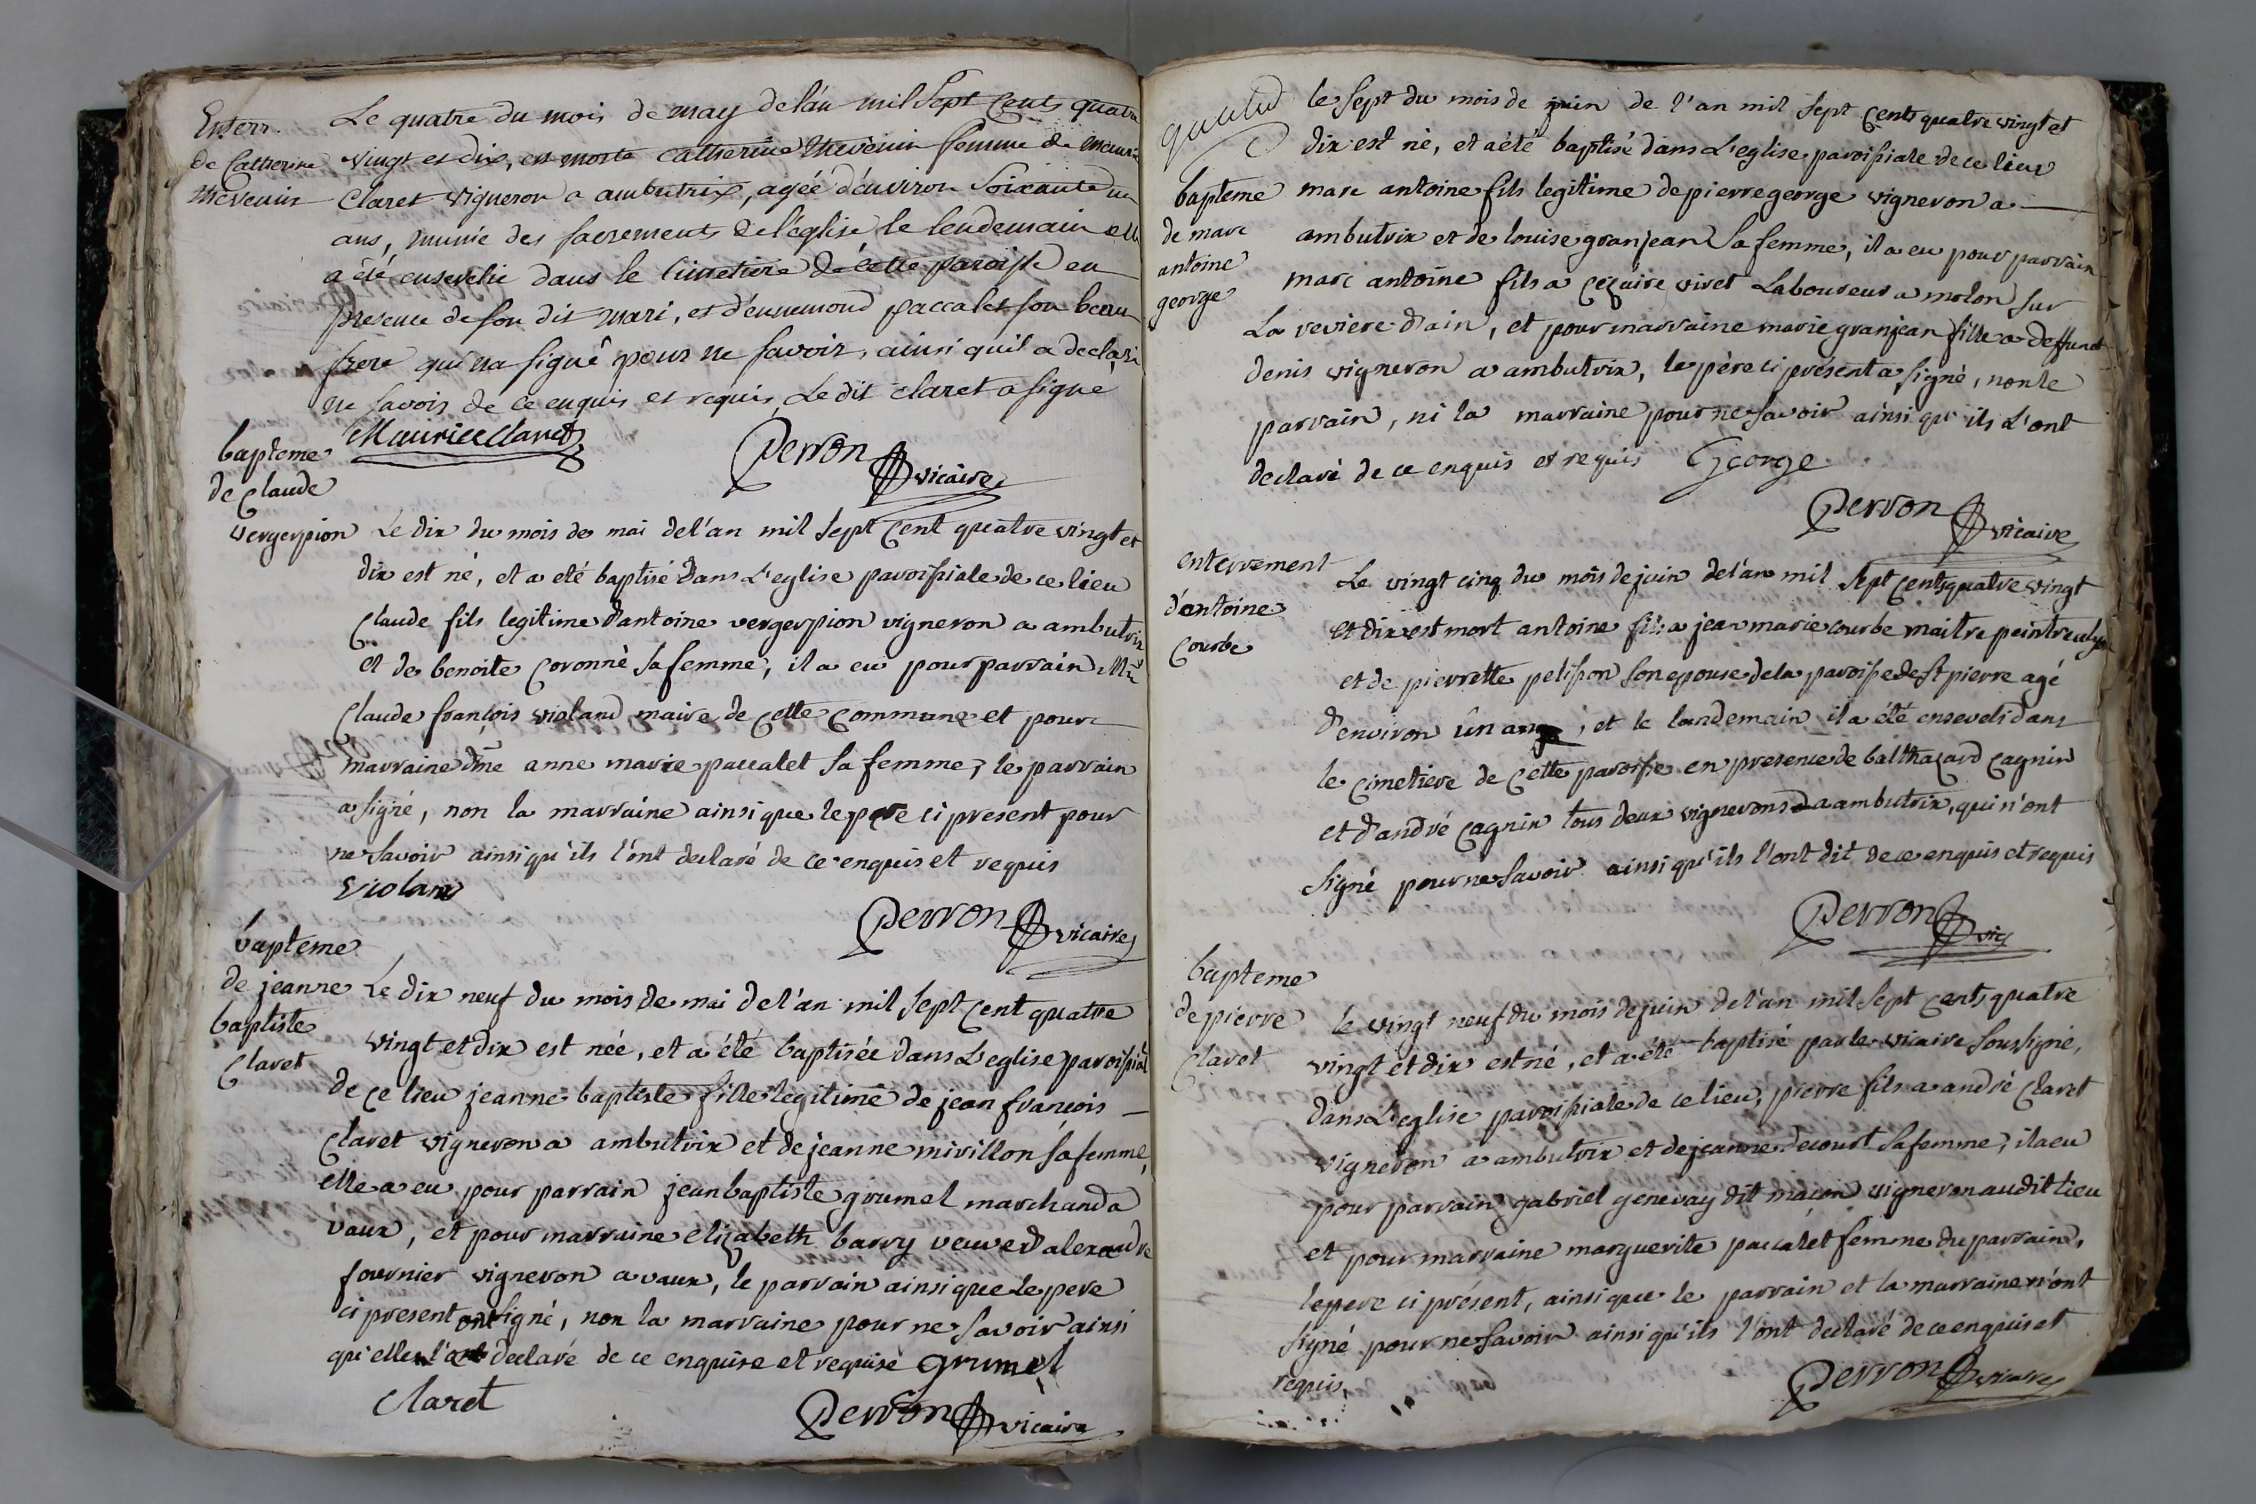 Enterr.
de Catherine
thevenin
Le quatre du mois de may de l'an mil sept cents quatre
vingt et dix, est morte catherine thevenin femme de
Claret vigneron a ambutrix, agée d'environ soixante
ans, munie des sacrements de l'église le lendemain elle
a été ensevelie dans le cimetiere de cette paroisse en
presence de son dit mari, et d'ennemond paccalet son beau
frere qui n'a signé pour ne savoir, ainsi quil a declaré
ne savoir de ce enquis et requis, Le dit claret a signé
Maurice Claret
Perron vicaire
bapteme
de Claude
vergerpion
Le dix du mois de mai de l'an mil sept cent quatre vingt et
dix est né, et a eté baptisé dans l'eglise paroissiale de ce lieu
Claude fils legitime d'antoine vergerpion vigneron a ambutrix
et de benoite coronné sa femme, il a eu pour parrain Mr
Claude françois violand maire de cette commune et pour
marraine dme anne marie paccalet sa femme, le parrain
a signé, non la marraine ainsi que le pere ci present pour
ne savoir ainsi qu'ils l'ont declaré de ce enquis et requis
Violand
Perron vicaire
bapteme
de jeanne
baptiste
Claret
Le dix neuf du mois de mai de l'an mil sept cent quatre
vingt et dix est née, et a été baptisée dans l'eglise paroissial
de ce lieu jeanne baptiste fille legitime de jean françois
Claret vigneron a ambutrix et de jeanne mirillon sa femme,
elle a eu pour parrain jean baptiste grumel marchand a
vaux, et pour marraine elizabeth barry veuve d'alexandre
fournier vigneron a vaux, le parrain ainsi que le pere
ci present ont signé, non la marraine pour ne savoir ainsi
qu'elle l'a declaré de ce enquise et requise grumel
Claret
Perron vicaire
bapteme
de marc
antoine
george
le sept du mois de juin de l'an mil sept cents quatre vingt et
dix est né, et a été baptisé dans l'eglise paroissiale de ce lieu
marc antoine fils legitime de pierre george vigneron a
ambutrix et de louise granjean sa femme, il a eu pour parrain
marc antoine fils a cezaire viret laboureur a molon sur
la reviere d'ain, et pour marraine marie granjean fille a deffunt
denis vigneron a ambutrix, le père ci présent a signé, non le
parrain, ni la marraine pour ne savoir ainsi qu'ils l'ont
declaré de ce enquis et requis George
Perron vicaire
enterrement
d'antoine
Courbe
Le vingt cinq du mois de juin de l'an mil sept cents quatre vingt
et dix est mort antoine fils a jean marie courbe maitre peintre
et de pierrette pelisson son epouse de la paroisse de st pierre agé
d'environ un an, et le landemain il a été enseveli dans
le cimetiere de cette paroisse en presence de balthazard cagnin
et d'andré cagnin tous deux vignerons a ambutrix, qui n'ont
signé pour ne savoir ainsi qu'ils l'ont dit de ce enquis et requis
Perron vic
bapteme
de pierre
Claret
le vingt neuf du mois de juin de l'an mil sept cents quatre
vingt et dix est né, et a été baptisé par le vicaire soussigné,
dans l'eglise paroissiale de ce lieu, pierre fils a andré claret
vigneron a ambutrix et de jeanne decourt sa femme, il a eu
pour parrain gabriel genevay dit macon vigneron audit lieu
et pour marraine marguerite paccalet femme du parrain,
le pere ci présent, ainsi que le parrain et la marraine n'ont
signé pour ne savoir ainsi qu'ils l'ont declaré de ce enquis et
requis,
Perron vicaire